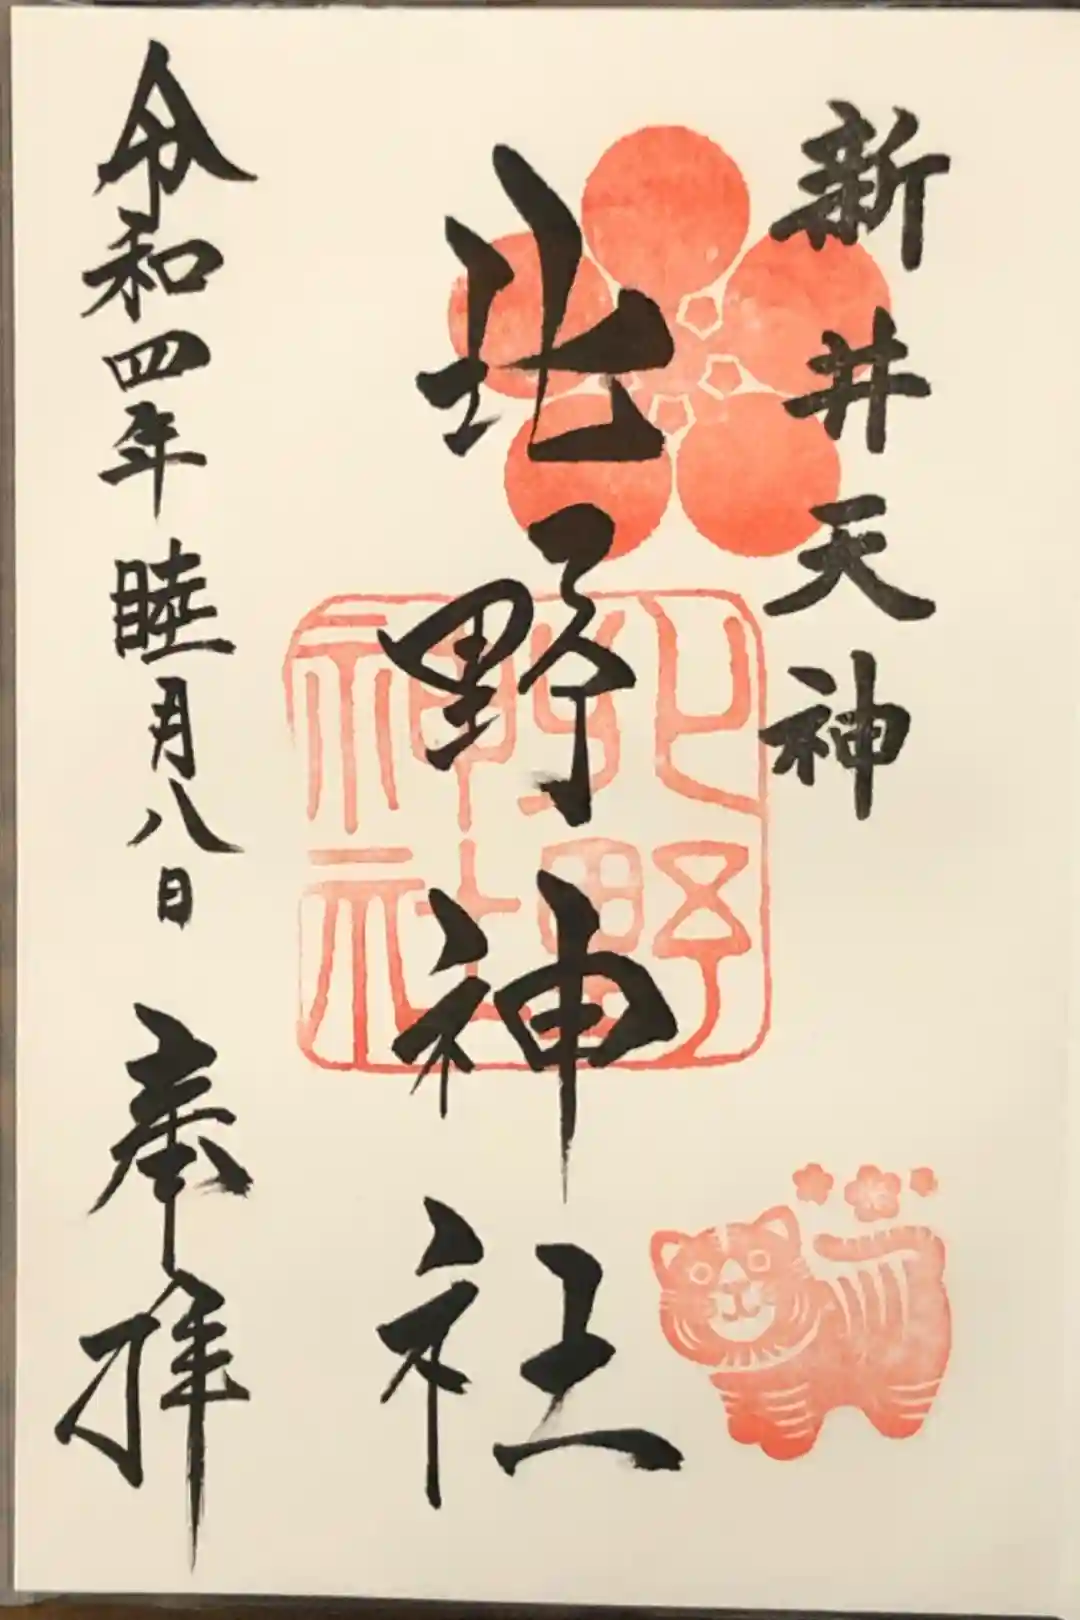 新井天神
北野神社
北野
神社
令和四年睦月八日 奉拝